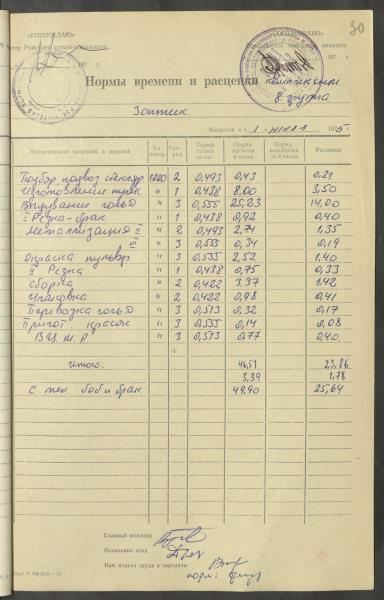 30
«УТВЕРЖДАЮ»
«СОГЛАСОВАНО»
197 г.
197 г.
Нормы времени и расценки
8 група
Зонтик
Вводятся с « 1 » 1975 г.
Наименование операций и изделий
Ед. измер.
Раз-ряд
Тариф. ставка за час
Норма времени в часах
Норма выработки за 8 часов
Расценки
Подбор, подвоз 1000 2 0,493 0,43 0,21
Изготовление 1 0,438 8,00 3,50
Выдувание " 3 0,555 25,23 14,00
I Резка - брак " 1 0,438 0,92 0,40
Металлизация II " 2 0,493 2,74 1,35
III " 3 0,555 0,34 0,19
Окраска пульвер. " 3 0,555 2,52 1,40
II Резка " 1 0,438 0,75 0,33
Сборка " 2 0,422 3,37 1,42
Упаковка " 2 0,422 0,98 0,41
Перевозка " 3 0,513 0,32 0,17
Пригот. красок " 3 0,555 0,14 0,08
" 3 0,513 0,77 0,40
Итого. 46,51 23,86
3,39 1,78
С бой и брак. 49,90 25,64
Главный инженер
Начальник цеха
Нач. отдела труда и зарплаты